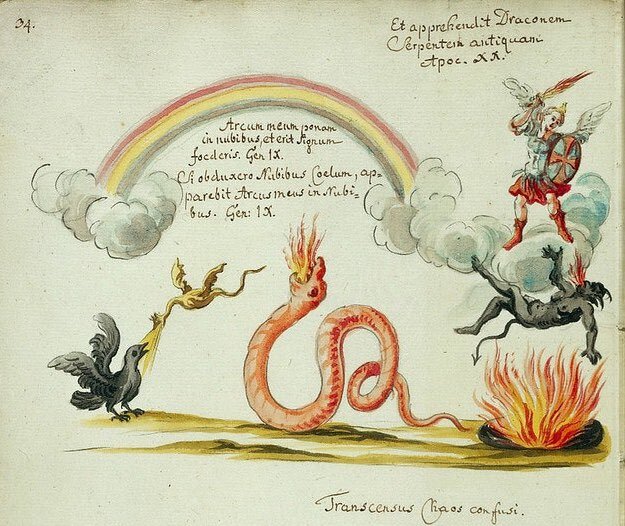 34.
Et apprehendit Draconem
Serpentem antiquam
Apoc. XX.
Arcum meum ponam
in nubibus, et erit signum
foederis. Gen IX.
Si obduxero Nubibus Coelum, ap=
parebit Arcus meus in Nubi=
bus. Gen: IX.
Transcensus Chaos confusi.